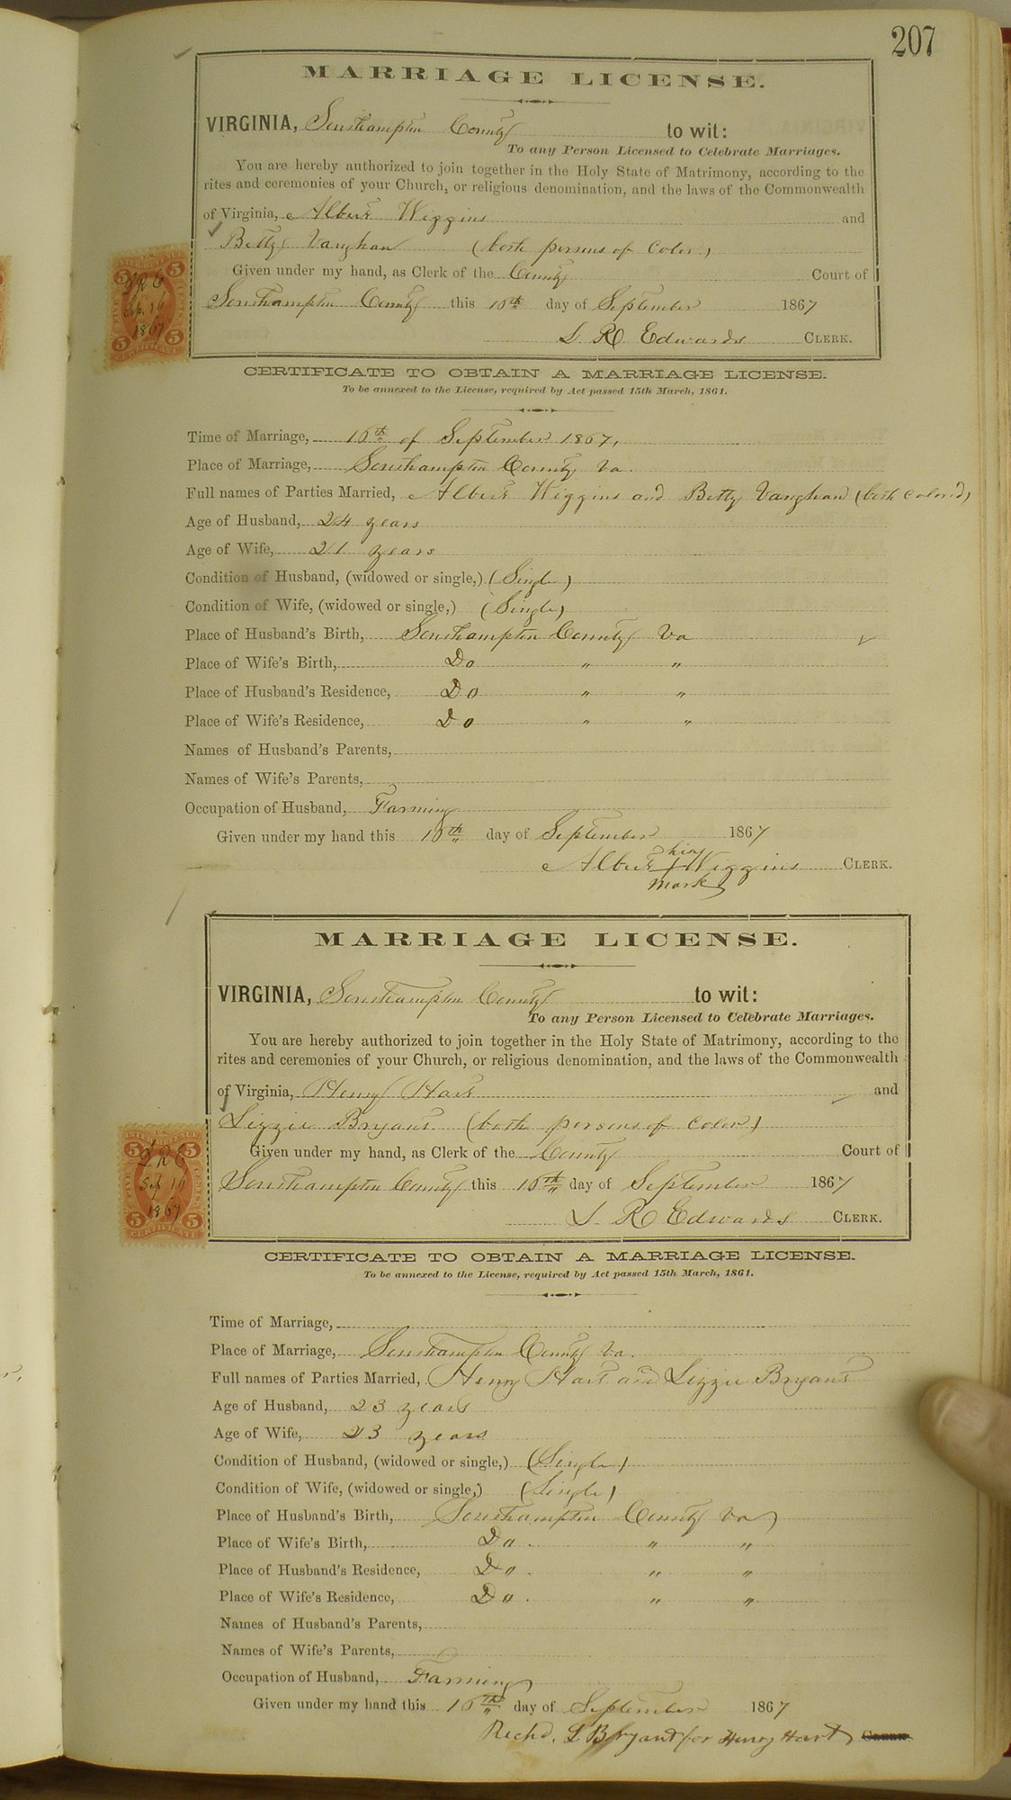 207
MARRIAGE LICENSE.
VIRGINIA, Southampton County to wit:
To any Person Licensed to Celebrate Marriages.
You are hereby authorized to join together in the Holy State of Matrimony, according to the
rites and ceremonies of your Church, or religious denomination, and the laws of the Commonwealth
of Virginia, Albert Wiggins and
Betty Vaughan (both persons of Color)
Given under my hand, as Clerk of the County Court of
Southampton County this 16th day of September 1867
L R Edwards CLERK.
5 5
LRE
Sep. 16
1867
5 5
CERTIFICATE TO OBTAIN A MARRIAGE LICENSE.
To be annexed to the License, required by Act passed 15th March, 1861.
Time of Marriage, 16th of September 1867,
Place of Marriage, Southampton County Va.
Full names of Parties Married, Albert Wiggins and Betty Vaughan (both colored)
Age of Husband, 24 years
Age of Wife, 21 years
Condition of Husband, (widowed or single,) (Single)
Condition of Wife, (widowed or single,) (Single)
Place of Husband's Birth, Southampton County Va
Place of Wife's Birth, Do " "
Place of Husband's Residence, Do " "
Place of Wife's Residence, Do " "
Names of Husband's Parents,
Names of Wife's Parents,
Occupation of Husband, Farming
Given under my hand this 16th day of September 1867
his
Albert + Wiggins CLERK.
mark
MARRIAGE LICENSE.
VIRGINIA, Southampton County to wit:
To any Person Licensed to Celebrate Marriages.
You are hereby authorized to join together in the Holy State of Matrimony, according to the
rites and ceremonies of your Church, or religious denomination, and the laws of the Commonwealth
of Virginia, Henry Hart and
Lizzie Bryant (both persons of Color)
Given under my hand, as Clerk of the County Court of
Southampton County this 16th day of September 1867
L R Edwards CLERK.
5 5
LRE
Sep 16
1867
5 5
CERTIFICATE
CERTIFICATE TO OBTAIN A MARRIAGE LICENSE.
To be annexed to the License, required by Act passed 15th March, 1861.
Time of Marriage,
Place of Marriage, Southampton County Va.
Full names of Parties Married, Henry Hart and Lizzie Bryant
Age of Husband, 23 years
Age of Wife, 23 years
Condition of Husband, (widowed or single,) (Single)
Condition of Wife, (widowed or single,) (Single)
Place of Husband's Birth, Southampton County Va
Place of Wife's Birth, Do. " "
Place of Husband's Residence, Do. " "
Place of Wife's Residence, Do. " "
Names of Husband's Parents,
Names of Wife's Parents,
Occupation of Husband, Farming
Given under my hand this 16th day of September 1867
Richd. L Bryant for Henry Hart CLERK